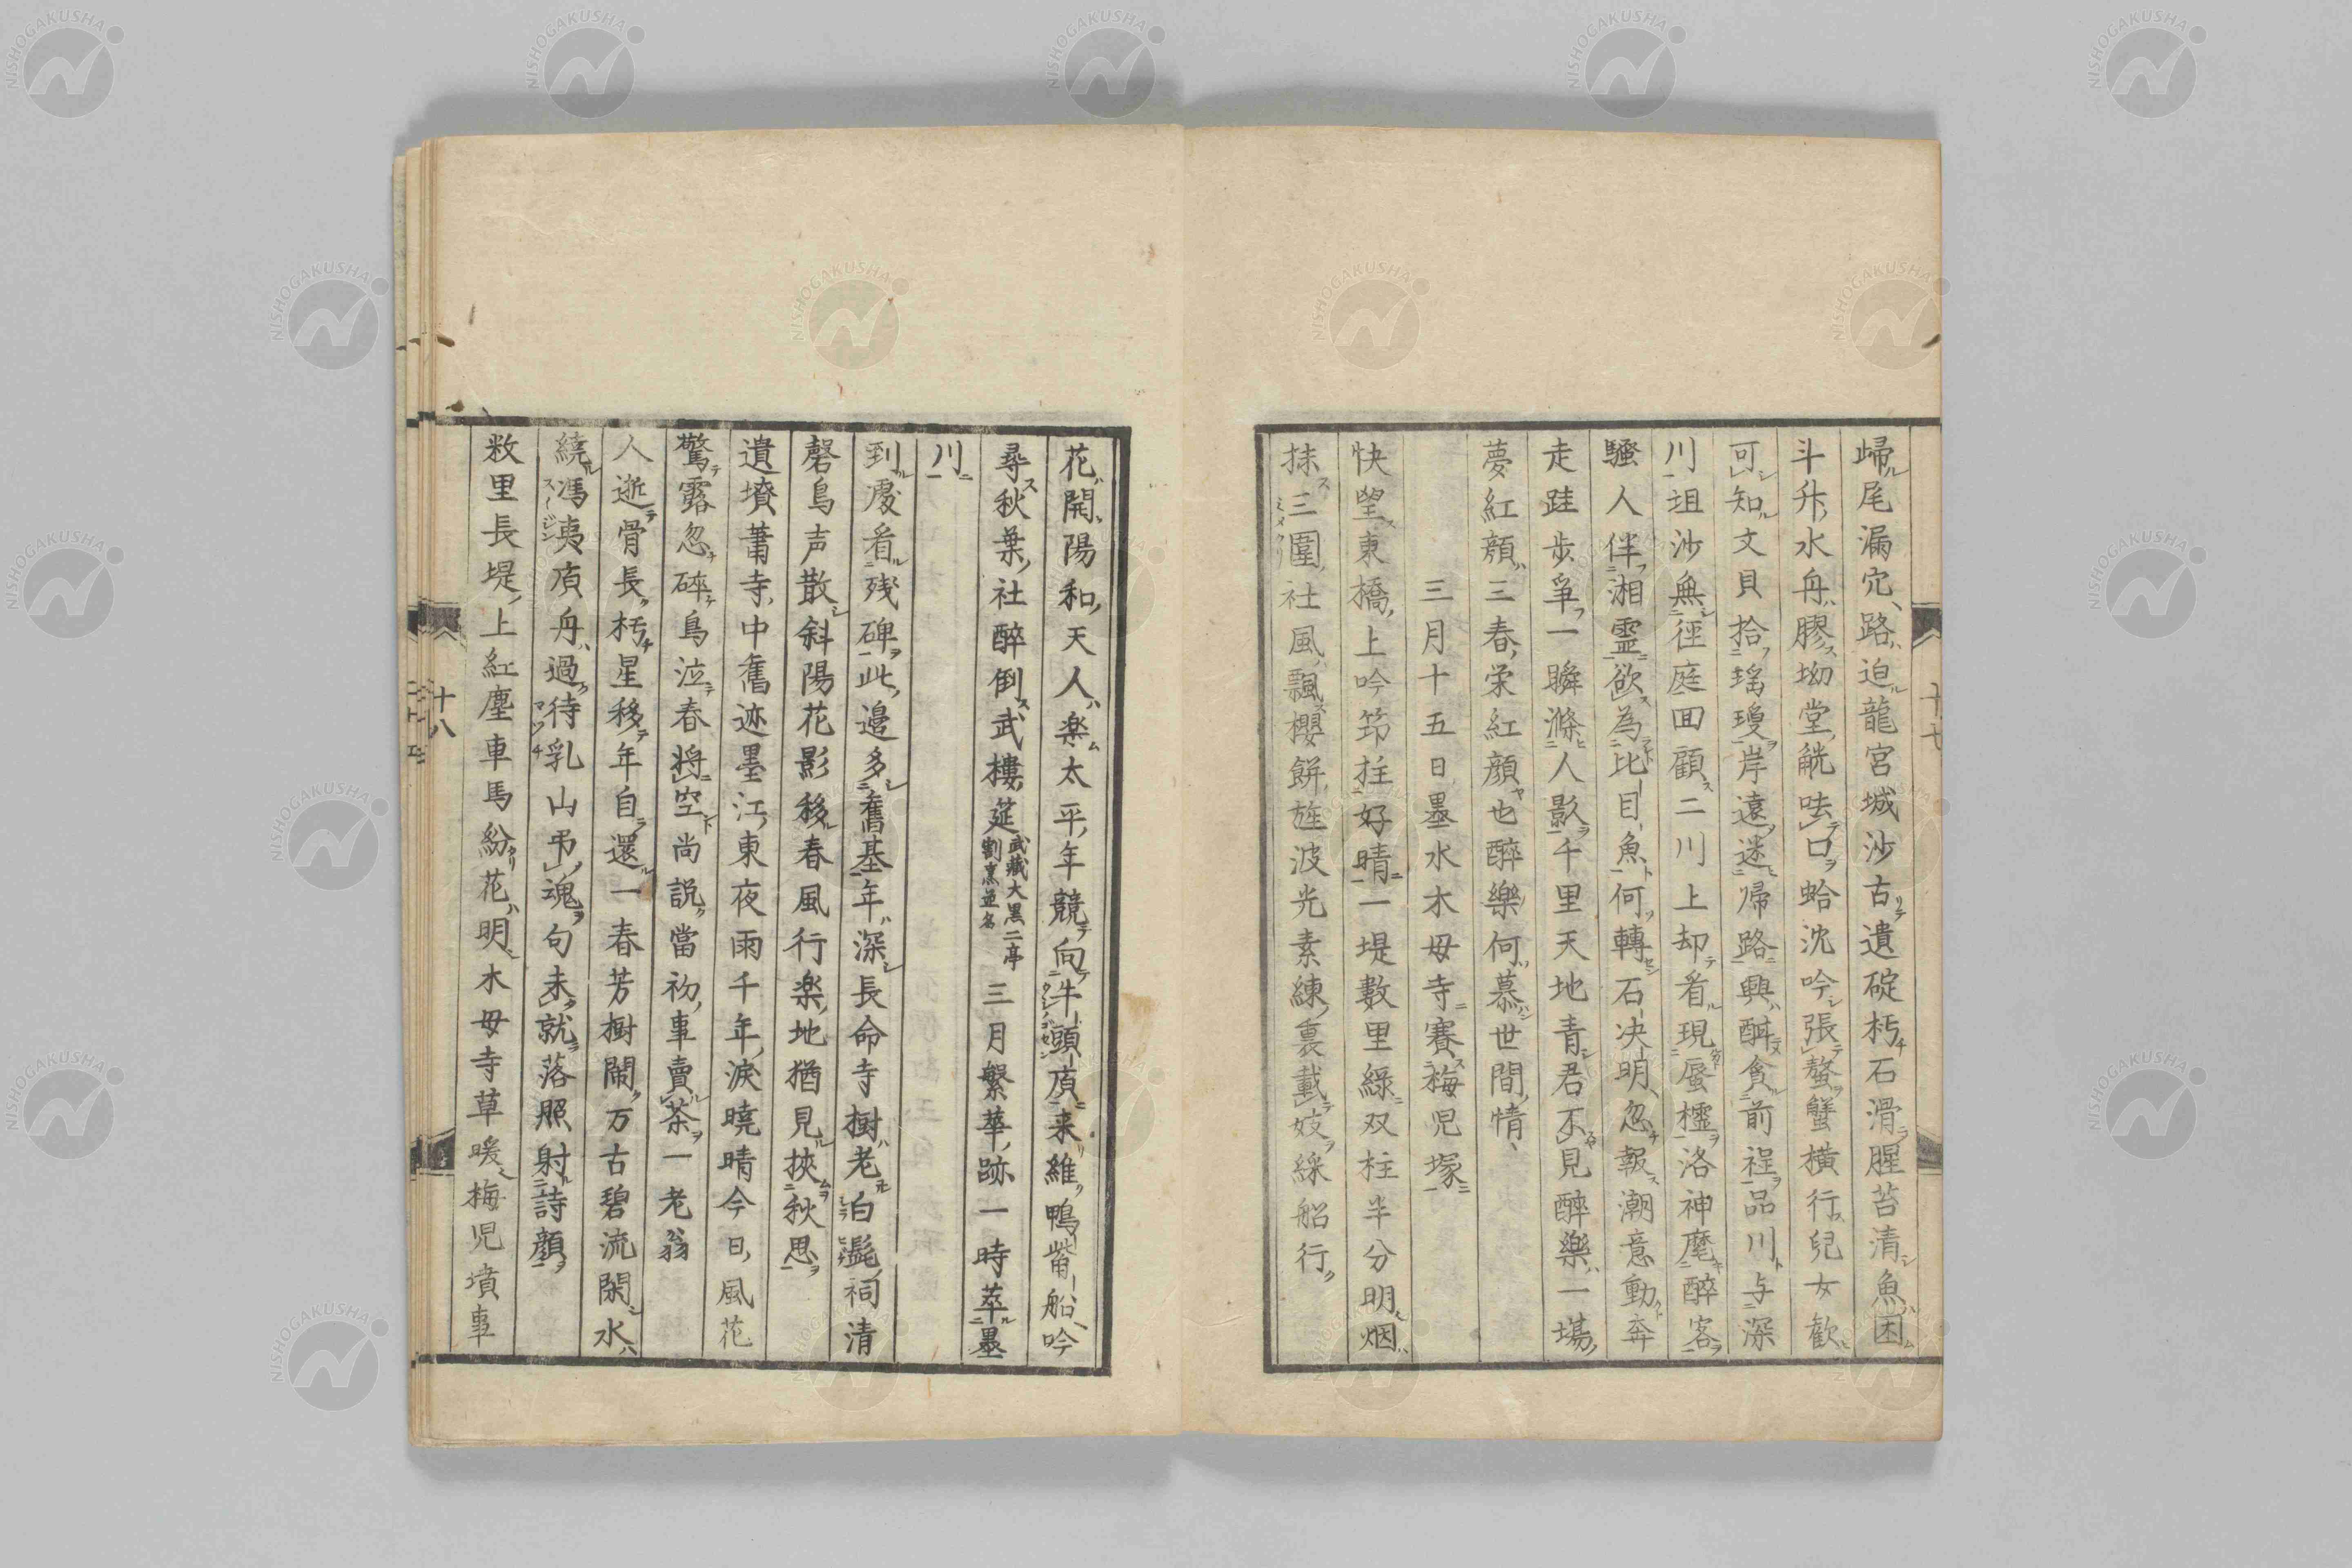 帰尾漏穴路迫龍宮城沙古遺碇朽石滑腥苔清魚困
斗升水舟膠坳堂觥呿口蛤沈吟張螯蟹横行兒女歓
可知文貝拾瑶瓊岸遠迷帰路興酣貪前程品川与深
川沮沙無徑庭回顧二川上却看現蜃樓洛神麾醉客
騒人伴湘霊欲為比目魚何轉石决明忽報潮意動奔
走跬歩爭一瞬滌人影千里天地青君不見醉樂一場
夢紅顔三春栄紅顔也醉樂何慕世間情
三月十五日墨水木母寺賽梅児塚
快望東橋上吟筇拄好晴一堤數里緑双柱半分明烟
抹三圍社風飄櫻餅旌波光素練裏載妓綵船行
十七
花開陽和天人楽太平年競向牛頭頂来維鴨觜船吟
尋秋葉社醉倒武樓莚武藏大黒二亭割烹並名三月繁華跡一時萃墨
川
到處看残碑此邉多舊基年深長命寺樹老白髭祠清
磬鳥声散斜陽花影移春風行楽地猶見挾秋思
遺墳蕭寺中舊迹墨江東夜雨千年涙曉晴今日風花
驚露忽碎鳥泣春将空尚説當初事賣茶一老翁
人逝骨長朽星移年自還一春芳樹閙万古碧流閑水
繞馮夷廎舟過待乳山弔魂句未就落照射詩顔
敉里長堤上紅塵車馬紛花明木母寺草暖梅児墳事
十八
NISHOGAKUSHA